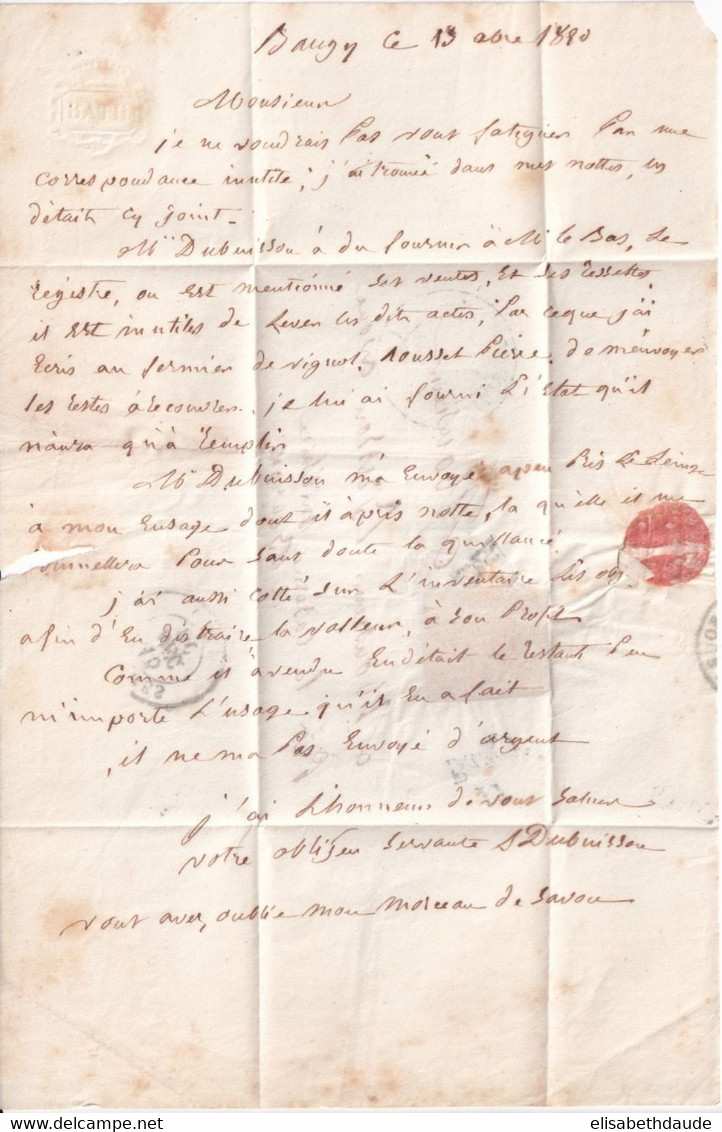 Baugy Ce 13 abre 18
Monsieur
je ne voudrais Pas vous fatiguer Par une
correspondance inutile; j'ai trouvée dans mes nottes, les
détails Cy joint.
Mr Dubuisson à du fournir à Mr le Bas, Le
régistre, ou est mentionné ses ventes, Et ses
il est inutiles de Lever les dits actes; Par ceque j'ai
Ecris au fermier de vignol, Rousset Pierre, de m'envoyer
les à recouvrer. je lui ai fourni L'Etat qu'il
n'aura qu'à Remplir
Mr Dubuisson m'a Envoyé apeu Près Le Linge
à mon Eusage dont il à pris notte, la quelle il me
Pour sans doute la quittancé
j'ai aussi Cotté sur L'inventaire Les obj
afin d'En distraire la valleur, à son Profit
Comme il à vendu En détail le restant Peu
m'importe L'usage qu'il En a fait
il ne ma Pas Envoyé d'argent
j'ai L'honneur de vous saluer
votre obligeu servante Dubuisson
vous avez oublié mon morceau de savon
elisabethdaude